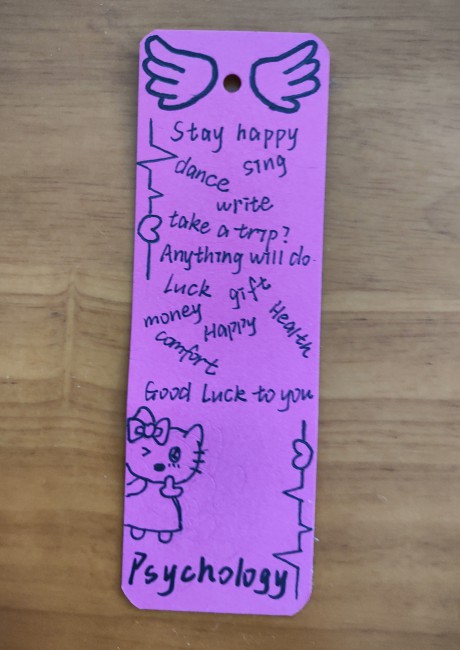 Stay happy
dance sing
write
take a trip?
Anything will do.
Luck gift
money Happy Health
comfort
Good Luck to you
Psychology